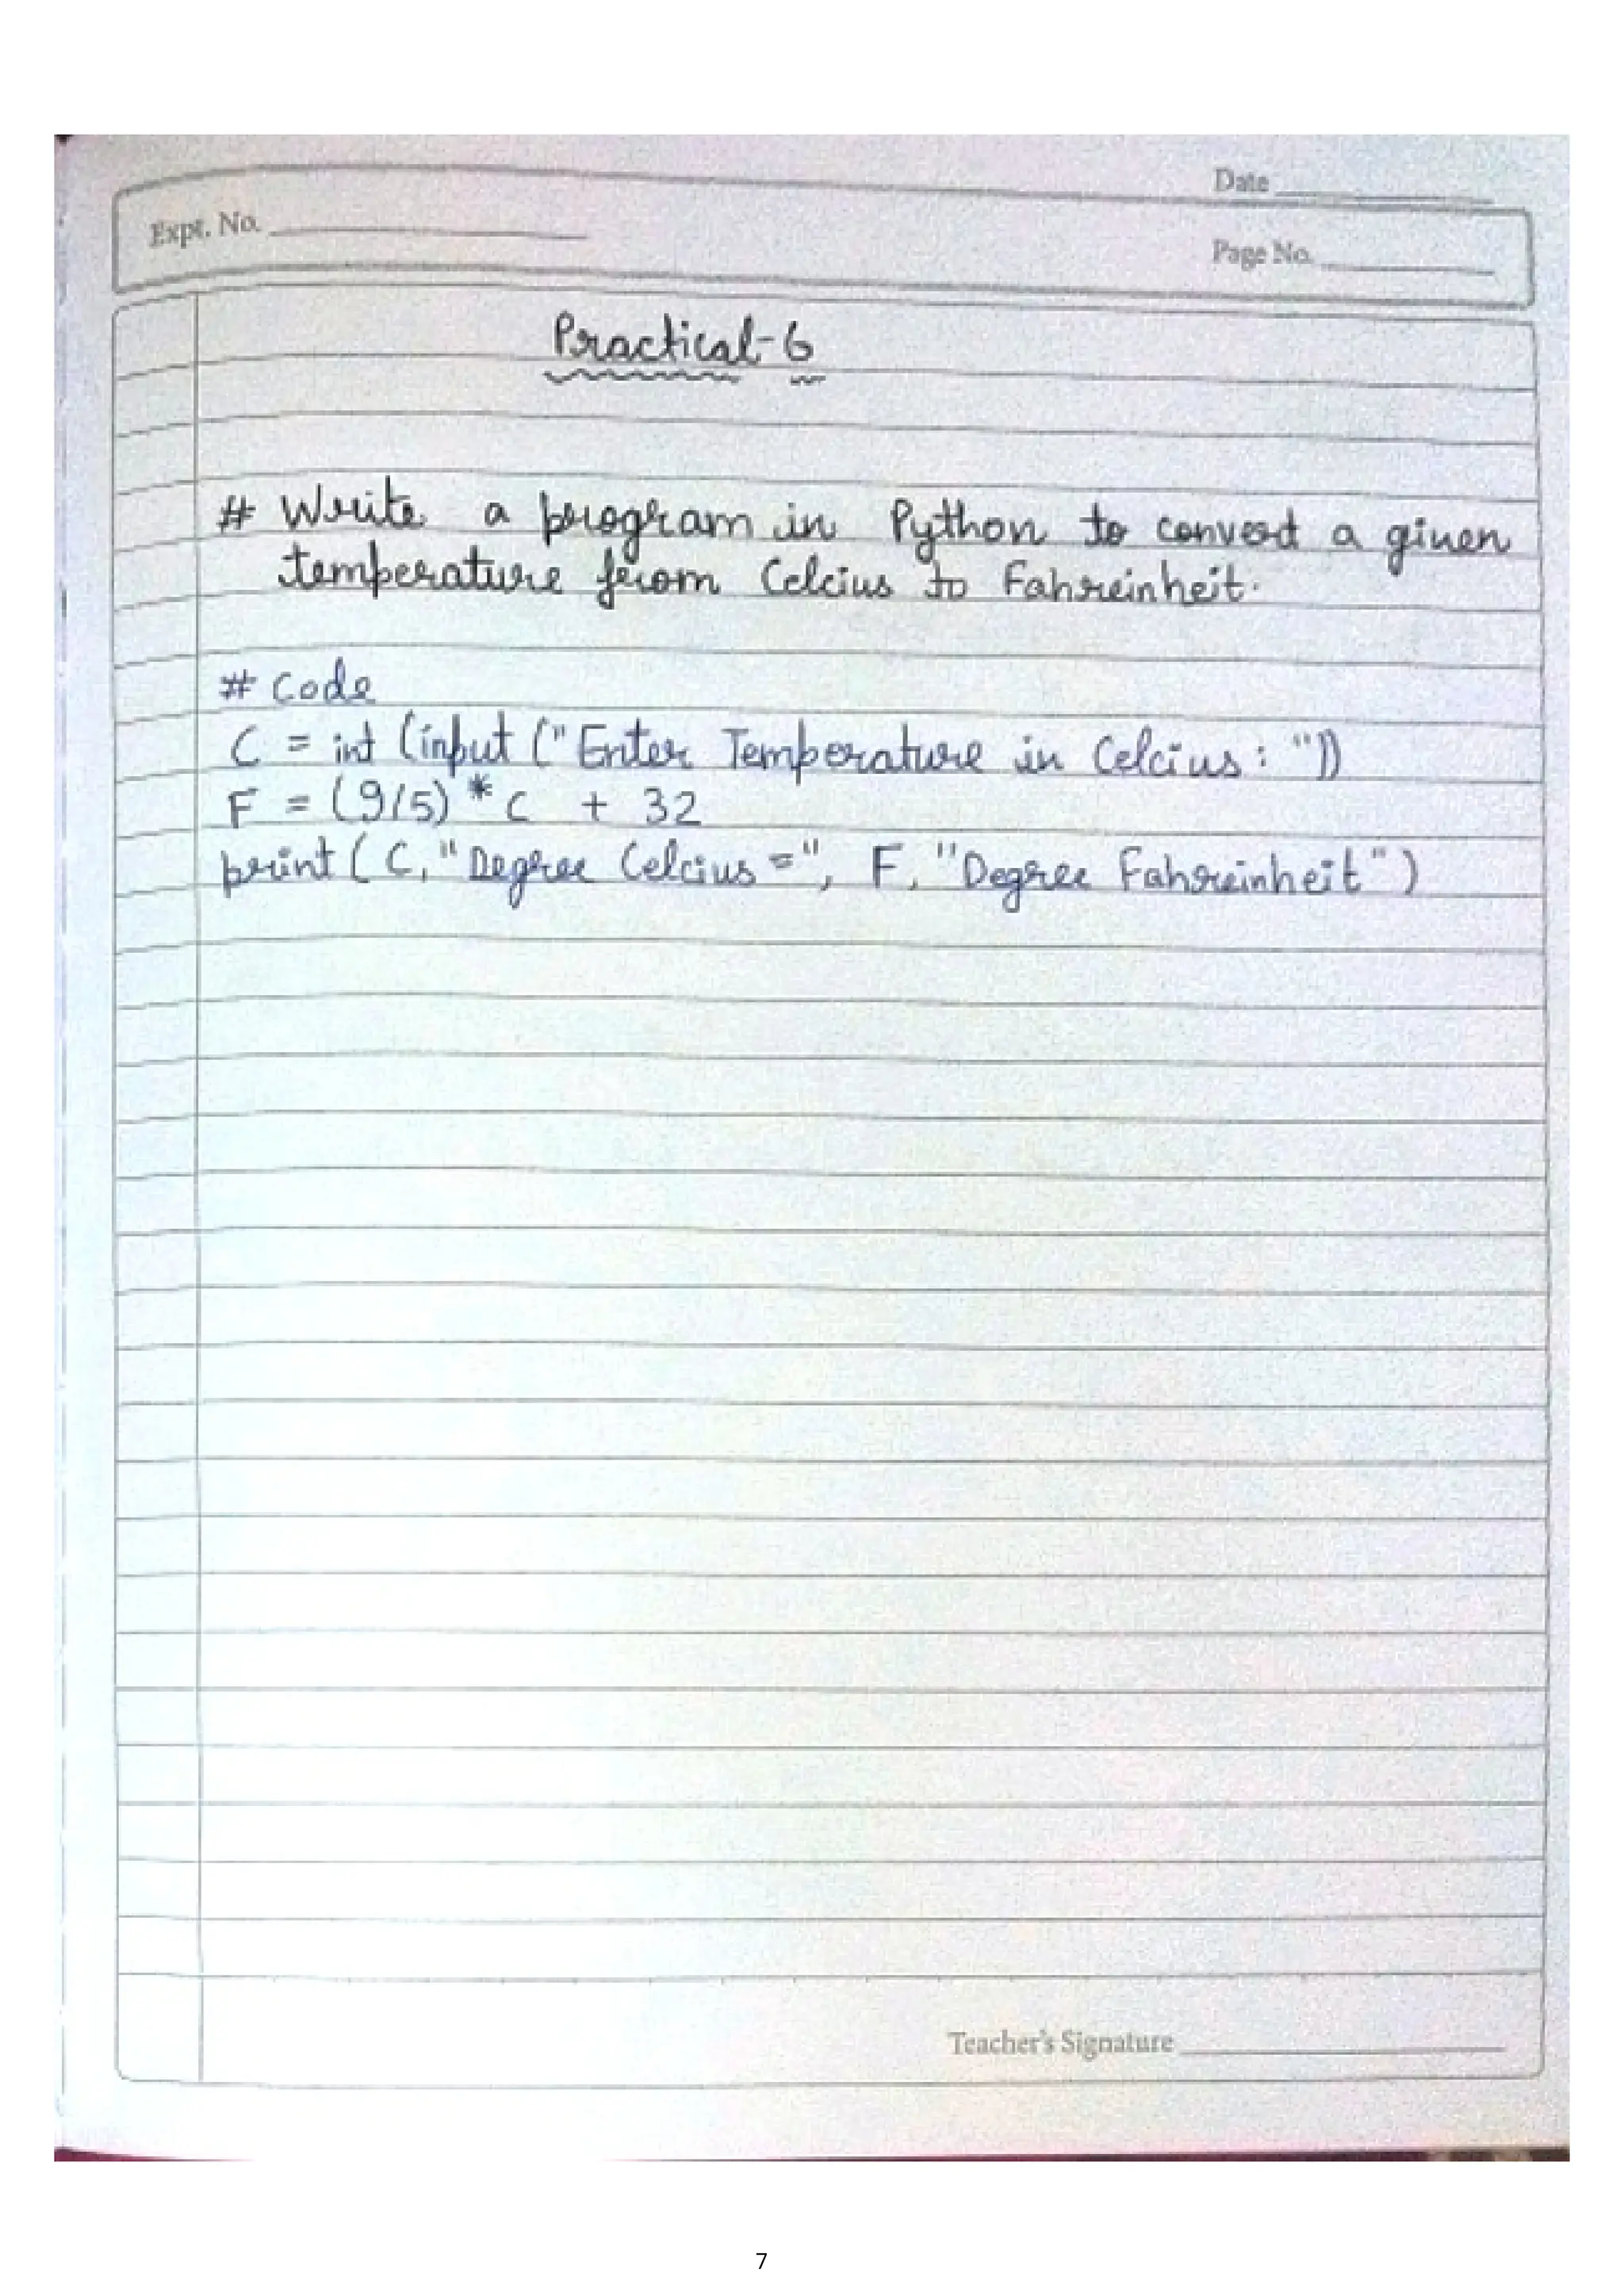 Date
Expt. No.
Page No.
Practical-6
# Write a program in Python to convert a given
temperature from Celcius to Fahreinheit.
# Code
C = int (input ("Enter Temperature in Celcius: "))
F = (9/5) * C + 32
print ( C, "Degree Celcius =", F, "Degree Fahreinheit" )
Teacher's Signature
7